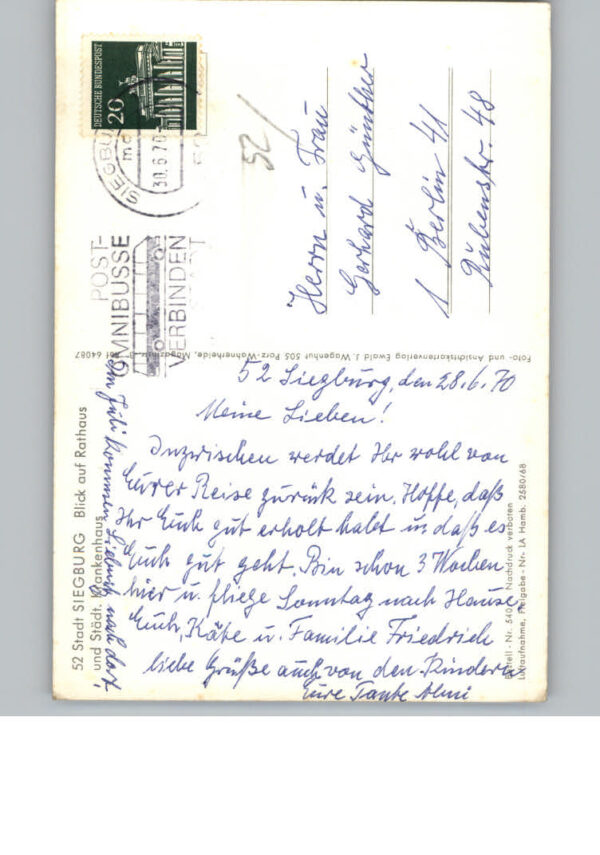 DEUTSCHE BUNDESPOST
20
SIEGBU
30.6.70
POST-
OMNIBUSSE
VERBINDEN
52/
Herrn u. Frau
Gerhard Günther
1 Berlin 41
Rubensstr. 48
Foto- und Ansichtskartenverlag Ewald J. Wagenhut 505 Porz-Wahnerheide, Magazinstr. Tel 64087
52 Siegburg, den 28.6.70
Meine Lieben!
Inzwischen werdet Ihr wohl von
Eurer Reise zurück sein. Hoffe, daß
Ihr Euch gut erholt habt u. daß es
Euch gut geht. Bin schon 3 Wochen
hier u. fliege Sonntag nach Hause.
Euch, Käte u. Familie Friedrich
liebe Grüße auch von den Kindern
Eure Tante
nach dort.
52 Stadt SIEGBURG Blick auf Rathaus
und Städt. Krankenhaus
Bestell-Nr. Nachdruck verboten
Luftaufnahme, Freigabe-Nr. LA Hamb. 2580/68